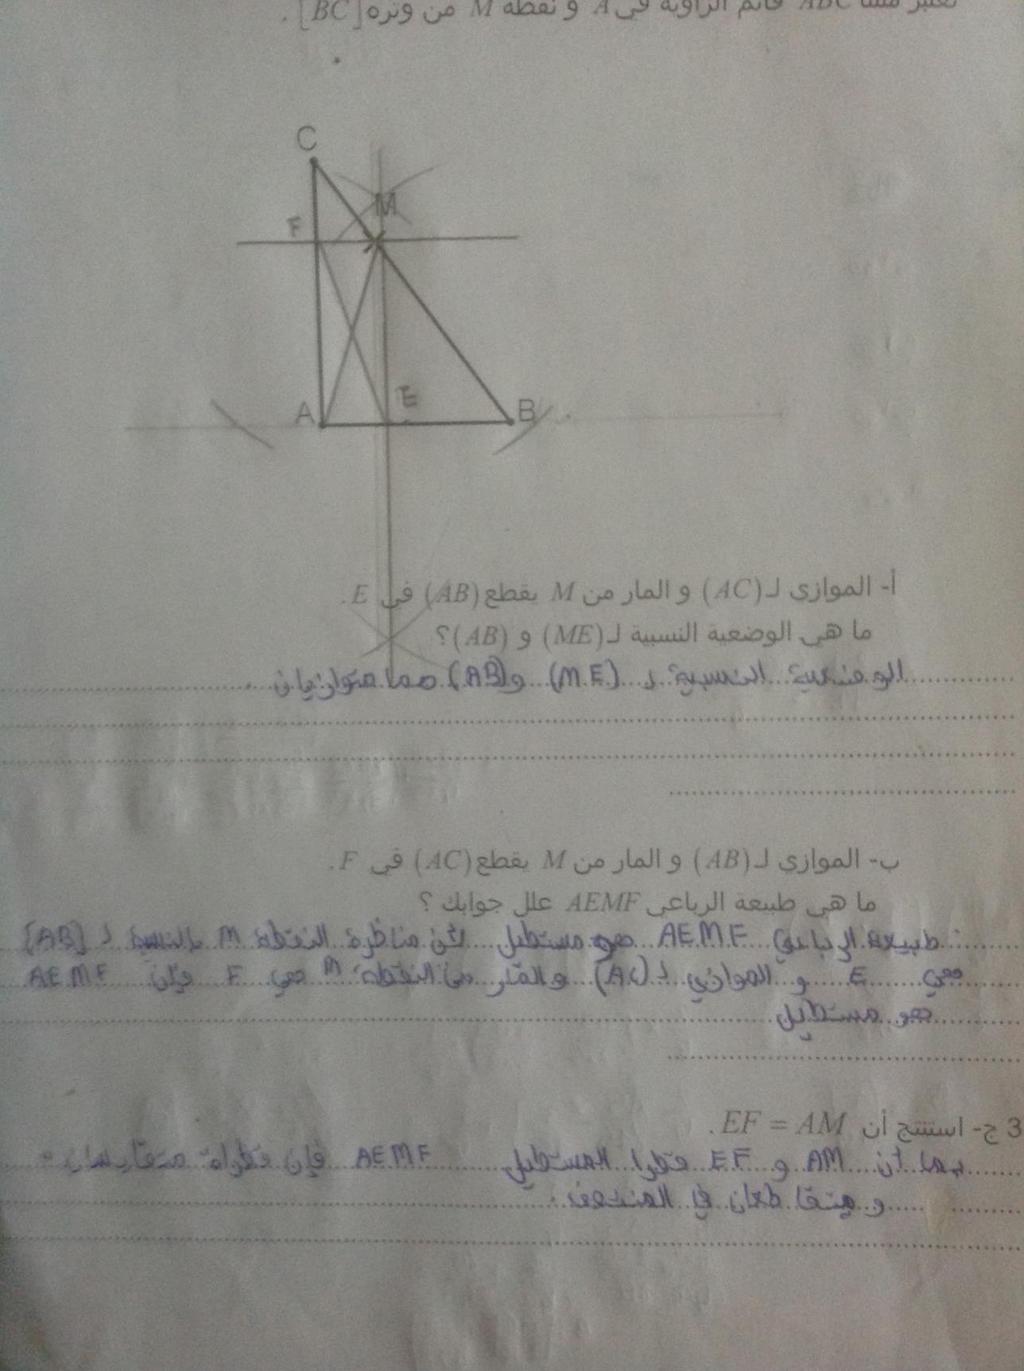 نعتبر مثلثا ABC قائم الزاوية في A و نقطة M من وتره [BC].
C
M
F
E
A
B
أ- الموازي لـ (AC) و المار من M يقطع (AB) في E.
ما هي الوضعية النسبية لـ (ME) و (AB)؟
الوضعية النسبية لـ (ME) و (AB) هما متوازيان.
ب- الموازي لـ (AB) و المار من M يقطع (AC) في F.
ما هي طبيعة الرباعي AEMF علل جوابك ؟
طبيعة الرباعي AEMF هو مستطيل لأن مناظرة النقطة M بالنسبة لـ [AB]
هي E و الموازي لـ (AC) والمار من النقطة M هي F فإن AEMF
هو مستطيل
3 ج- استنتج أن EF = AM.
بما أن AM و EF قطرا المستطيل AEMF فإن قطراه متقايسان
و ميتقاطعان في المنتصف.